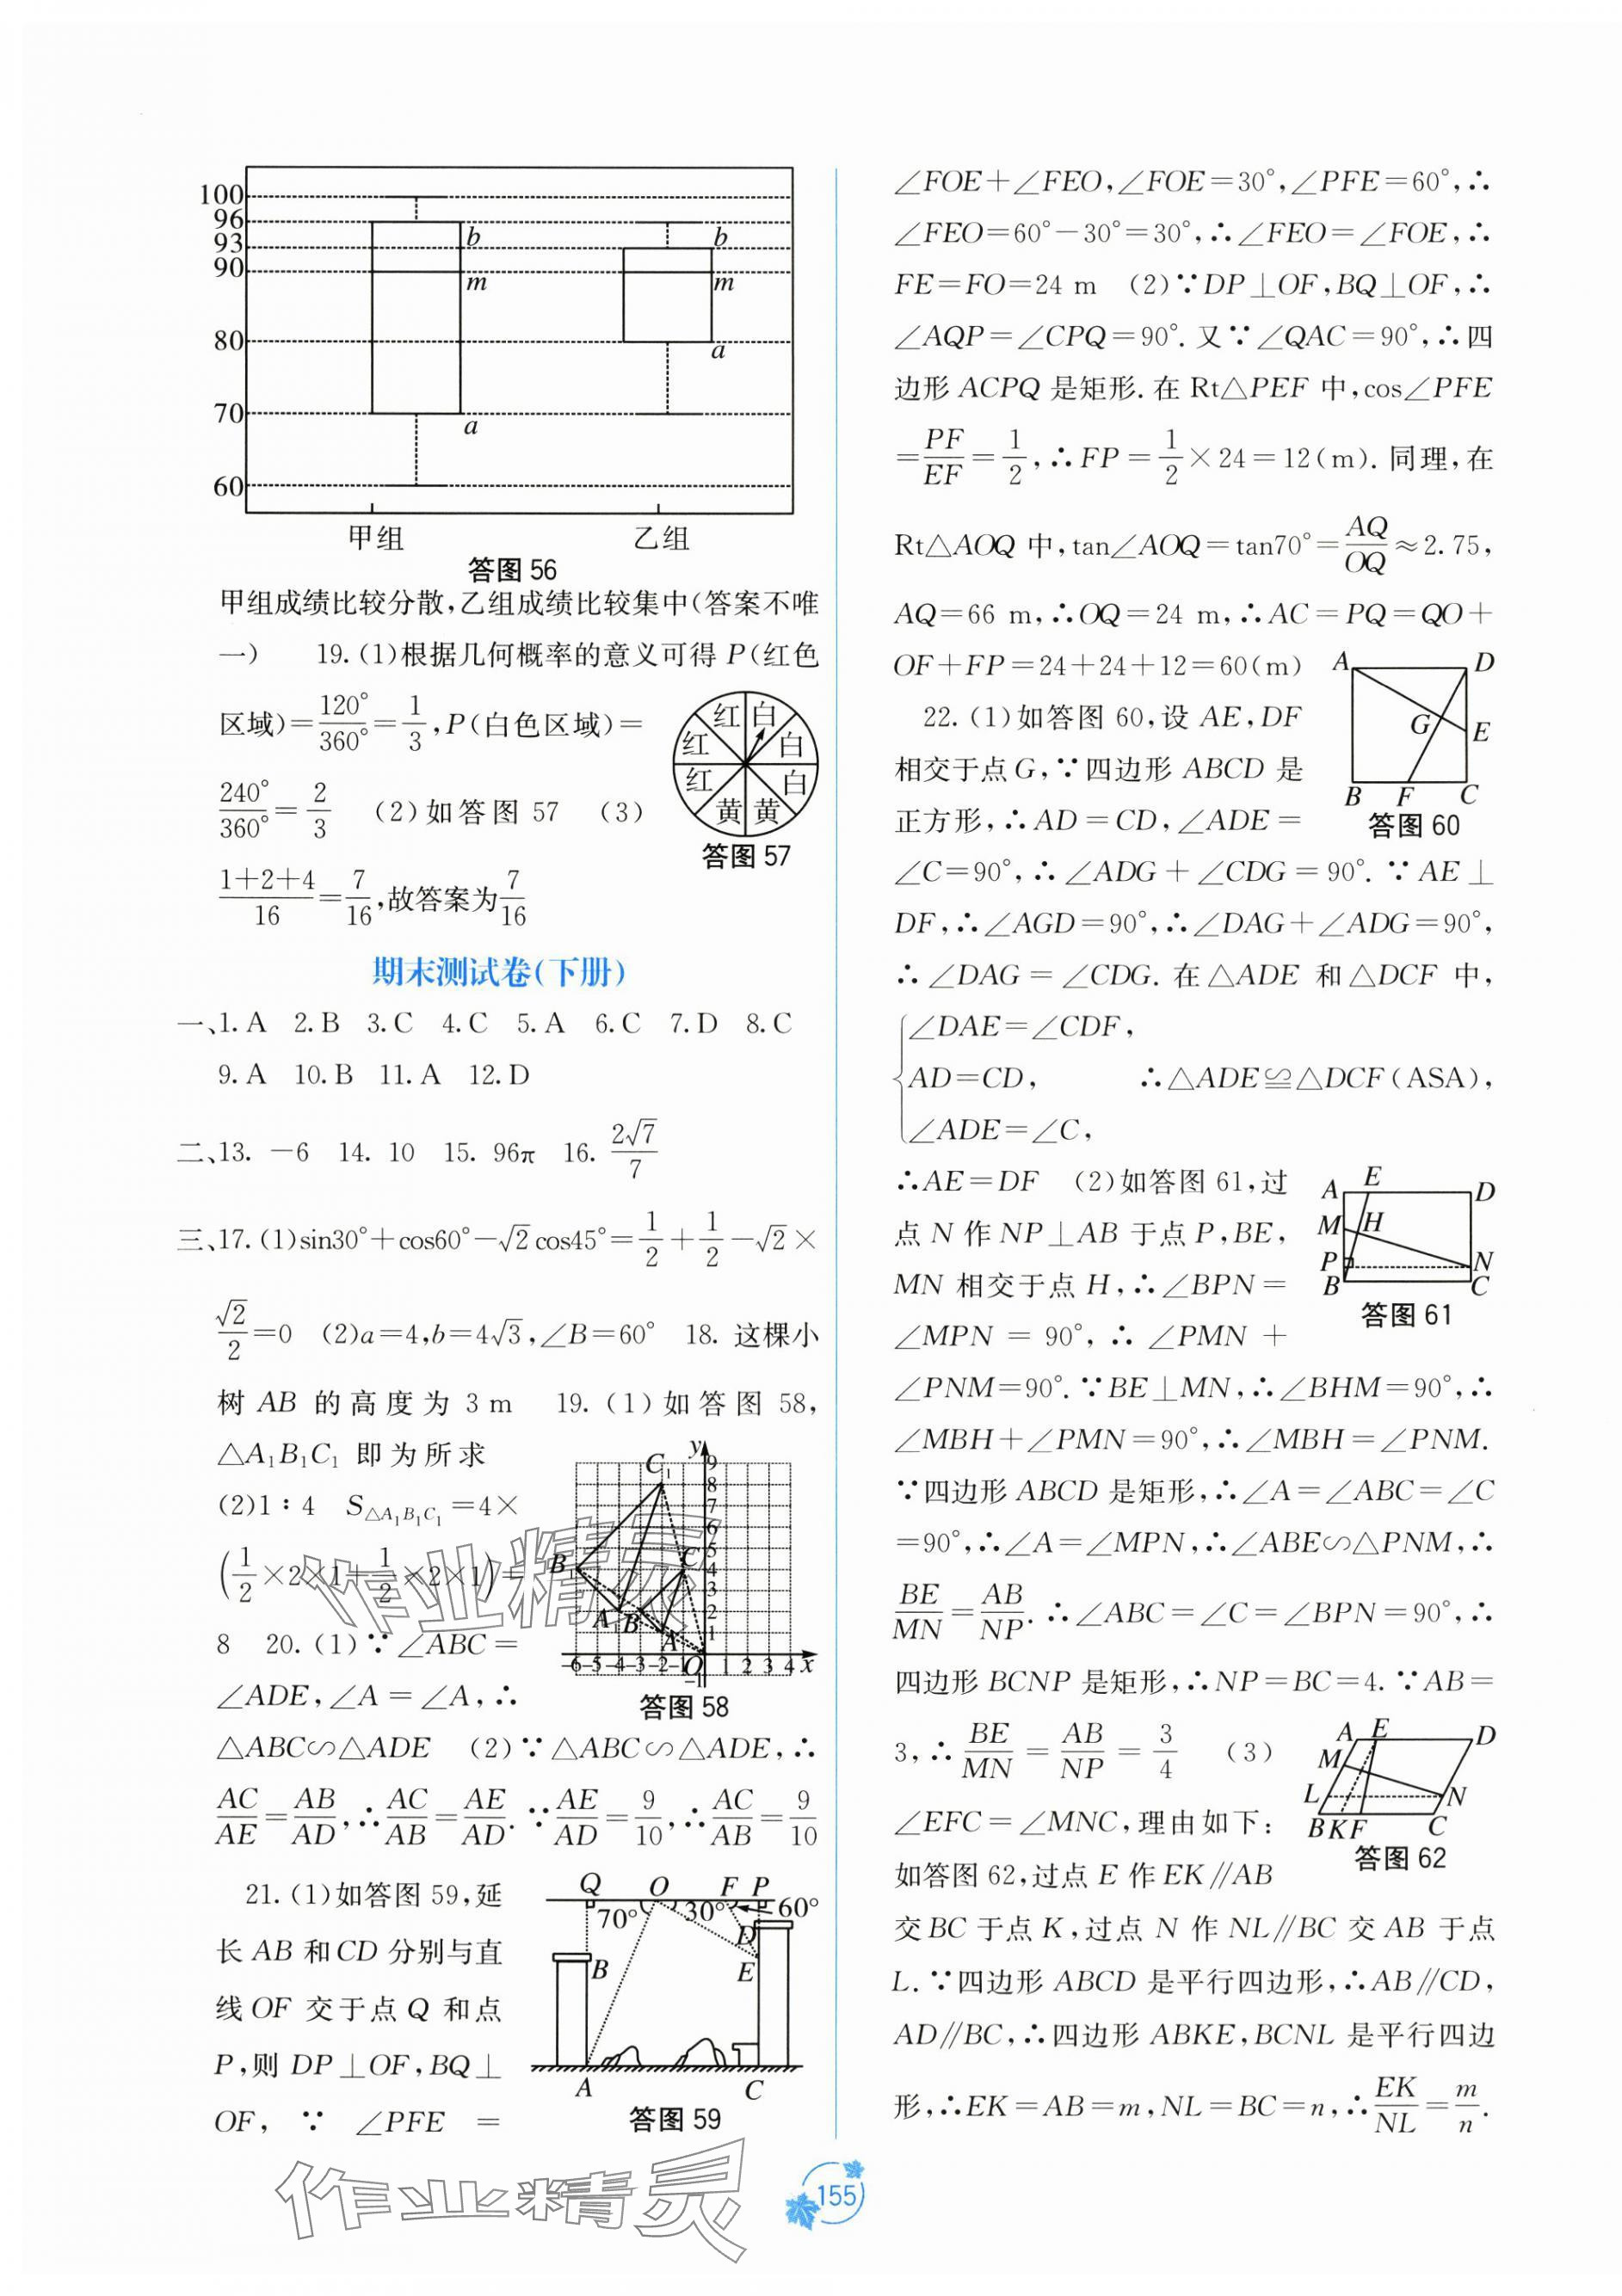 100
96
93
90
80
70
60
b
m
a
b
m
a
甲组 乙组
答图 56
甲组成绩比较分散,乙组成绩比较集中(答案不唯
一) 19. (1)根据几何概率的意义可得 P(红色
区域)=120°/360°=1/3,P(白色区域)=
240°/360°=2/3 (2)如答图 57 (3)
红 白 红 白 红 白 黄 黄
答图 57
(1+2+4)/16=7/16,故答案为7/16
期末测试卷(下册)
一、1. A 2. B 3. C 4. C 5. A 6. C 7. D 8. C
9. A 10. B 11. A 12. D
二、13. -6 14. 10 15. 96π 16. 2√7/7
三、17. (1)sin30°+cos60°-√2cos45°=1/2+1/2-√2×
√2/2=0 (2)a=4,b=4√3,∠B=60° 18. 这棵小
树 AB 的高度为 3 m 19. (1)如答图 58,
△A₁B₁C₁ 即为所求
(2)1∶4 S△A₁B₁C₁=4×
(1/2×2×1+1/2×2×1)=
8 20. (1)∵∠ABC=
∠ADE,∠A=∠A,∴
答图 58
△ABC∽△ADE (2)∵△ABC∽△ADE,∴
AC/AE=AB/AD,∴AC/AB=AE/AD. ∵AE/AD=9/10,∴AC/AB=9/10
21. (1)如答图 59,延
长 AB 和 CD 分别与直
线 OF 交于点 Q 和点
P,则 DP⊥OF,BQ⊥
OF, ∵ ∠PFE =
Q O F P
70° 30° 60°
D
B E
A C
答图 59
∠FOE+∠FEO,∠FOE=30°,∠PFE=60°,∴
∠FEO=60°-30°=30°,∴∠FEO=∠FOE,∴
FE=FO=24 m (2)∵DP⊥OF,BQ⊥OF,∴
∠AQP=∠CPQ=90°. 又∵∠QAC=90°,∴四
边形 ACPQ 是矩形. 在 Rt△PEF 中,cos∠PFE
=PF/EF=1/2,∴FP=1/2×24=12(m). 同理,在
Rt△AOQ 中,tan∠AOQ=tan70°=AQ/OQ≈2.75,
AQ=66 m,∴OQ=24 m,∴AC=PQ=QO+
OF+FP=24+24+12=60(m)
22. (1)如答图 60,设 AE,DF
相交于点 G,∵四边形 ABCD 是
正方形,∴AD=CD,∠ADE=
A D
G E
B F C
答图 60
∠C=90°,∴∠ADG+∠CDG=90°. ∵AE⊥
DF,∴∠AGD=90°,∴∠DAG+∠ADG=90°,
∴∠DAG=∠CDG. 在△ADE 和△DCF 中,
∠DAE=∠CDF,
AD=CD, ∴△ADE≌△DCF(ASA),
∠ADE=∠C,
∴AE=DF (2)如答图 61,过
点 N 作 NP⊥AB 于点 P,BE,
MN 相交于点 H,∴∠BPN=
∠MPN=90°,∴∠PMN+
A E D
M H
P N
B C
答图 61
∠PNM=90°. ∵BE⊥MN,∴∠BHM=90°,∴
∠MBH+∠PMN=90°,∴∠MBH=∠PNM.
∵四边形 ABCD 是矩形,∴∠A=∠ABC=∠C
=90°,∴∠A=∠MPN,∴∠ABE∽△PNM,∴
BE/MN=AB/NP. ∴∠ABC=∠C=∠BPN=90°,∴
四边形 BCNP 是矩形,∴NP=BC=4. ∵AB=
3,∴BE/MN=AB/NP=3/4 (3)
∠EFC=∠MNC,理由如下:
如答图 62,过点 E 作 EK∥AB
A E D
M
L N
B K F C
答图 62
交 BC 于点 K,过点 N 作 NL∥BC 交 AB 于点
L. ∵四边形 ABCD 是平行四边形,∴AB∥CD,
AD∥BC,∴四边形 ABKE,BCNL 是平行四边
形,∴EK=AB=m,NL=BC=n,∴EK/NL=m/n.
155
作业精灵
作业精灵